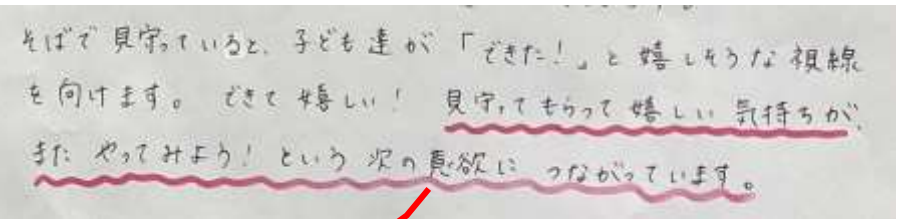 そばで見守っていると、子ども達が「できた!」と嬉しそうな視線
を向けます。できて嬉しい! 見守ってもらって嬉しい気持ちが、
また やってみよう! という 次の意欲に つながっています。